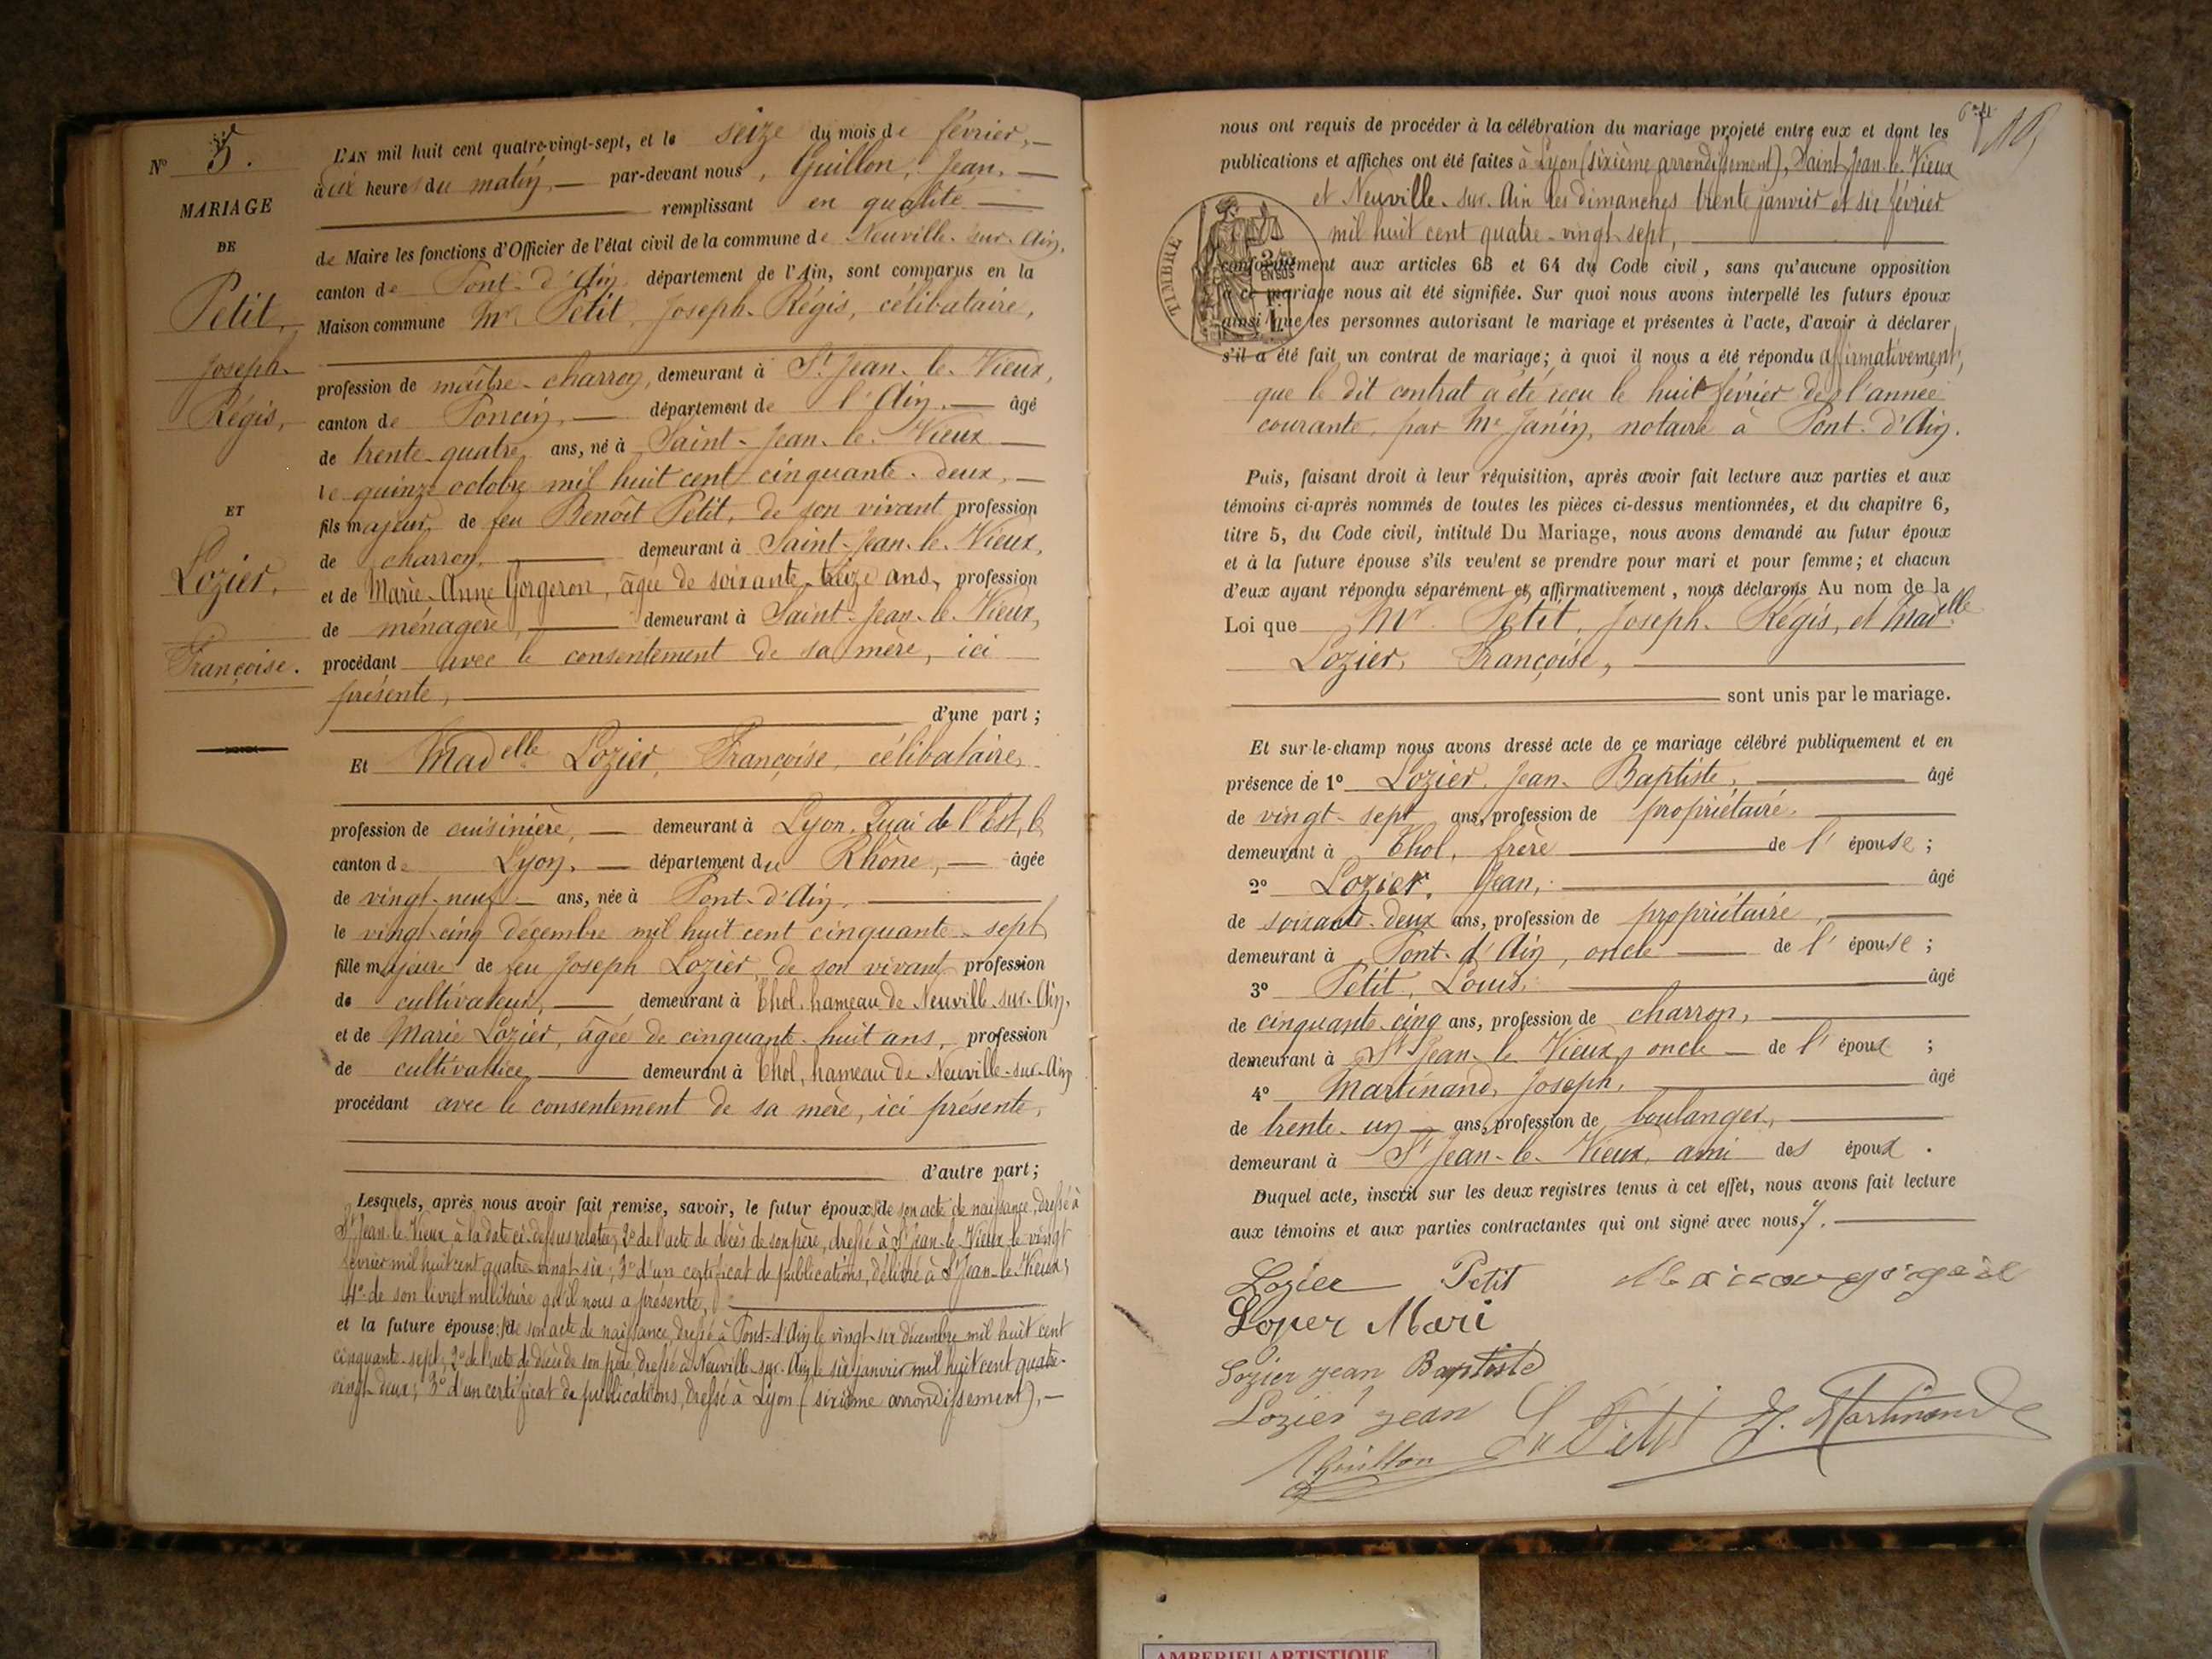 N° 5.
MARIAGE
DE
Petit,
Joseph-
Régis,
ET
Lozier,
Françoise.
L'AN mil huit cent quatre-vingt-sept, et le seize du mois de février,
à dix heures du matin, par-devant nous, Guillon, Jean,
remplissant en qualité
de Maire les fonctions d'Officier de l'état civil de la commune de Neuville-sur-Ain,
canton de Pont-d'Ain département de l'Ain, sont comparus en la
Maison commune Mr Petit, Joseph-Régis, célibataire,
profession de maître-charron, demeurant à St Jean-le-Vieux,
canton de Poncin, département de l'Ain, âgé
de trente-quatre ans, né à Saint-Jean-le-Vieux
le quinze octobre mil huit cent cinquante-deux,
fils majeur de feu Benoît Petit, de son vivant profession
de charron, demeurant à Saint-Jean-le-Vieux,
et de Marie-Anne Gorgeron, âgée de soixante-treize ans, profession
de ménagère, demeurant à Saint-Jean-le-Vieux,
procédant avec le consentement de sa mère, ici
présente,
d'une part;
Et Madelle Lozier, Françoise, célibataire,
profession de cuisinière, demeurant à Lyon, Quai de l'Est, 6
canton de Lyon, département du Rhône, âgée
de vingt-neuf ans, née à Pont-d'Ain,
le vingt-cinq décembre mil huit cent cinquante-sept
fille majeure de feu Joseph Lozier, de son vivant profession
de cultivateur, demeurant à Thol, hameau de Neuville-sur-Ain,
et de Marie Lozier, âgée de cinquante-huit ans, profession
de cultivatrice, demeurant à Thol, hameau de Neuville-sur-Ain
procédant avec le consentement de sa mère, ici présente,
d'autre part;
Lesquels, après nous avoir fait remise, savoir, le futur époux: 1° de son acte de naissance, dressé à
St Jean-le-Vieux, à la date ci-dessus relatée; 2° de l'acte de décès de son père, dressé à St Jean-le-Vieux le vingt
février mil huit cent quatre-vingt-six; 3° d'un certificat de publications, délivré à St Jean-le-Vieux;
4° de son livret militaire qu'il nous a présenté,
et la future épouse: 1° de son acte de naissance, dressé à Pont-d'Ain le vingt-six décembre mil huit cent
cinquante-sept; 2° de l'acte de décès de son père, dressé à Neuville-sur-Ain le six janvier mil huit cent quatre-
vingt-deux; 3° d'un certificat de publications, dressé à Lyon (sixième arrondissement),
nous ont requis de procéder à la célébration du mariage projeté entre eux et dont les
publications et affiches ont été faites à Lyon (sixième arrondissement), Saint-Jean-le-Vieux
et Neuville-sur-Ain les dimanches trente janvier et six février
mil huit cent quatre-vingt-sept,
TIMBRE
EN SUS
conformément aux articles 63 et 64 du Code civil, sans qu'aucune opposition
à ce mariage nous ait été signifiée. Sur quoi nous avons interpellé les futurs époux
ainsi que les personnes autorisant le mariage et présentes à l'acte, d'avoir à déclarer
s'il a été fait un contrat de mariage; à quoi il nous a été répondu affirmativement,
que le dit contrat a été reçu le huit février de l'année
courante, par Me Janin, notaire à Pont-d'Ain.
Puis, faisant droit à leur réquisition, après avoir fait lecture aux parties et aux
témoins ci-après nommés de toutes les pièces ci-dessus mentionnées, et du chapitre 6,
titre 5, du Code civil, intitulé Du Mariage, nous avons demandé au futur époux
et à la future épouse s'ils veulent se prendre pour mari et pour femme; et chacun
d'eux ayant répondu séparément et affirmativement, nous déclarons Au nom de la
Loi que Mr Petit, Joseph-Régis, et Madelle
Lozier, Françoise,
sont unis par le mariage.
Et sur-le-champ nous avons dressé acte de ce mariage célébré publiquement et en
présence de 1° Lozier, Jean-Baptiste, âgé
de vingt-sept ans, profession de propriétaire,
demeurant à Thol, frère de l'épouse;
2° Lozier, Jean, âgé
de soixante-deux ans, profession de propriétaire,
demeurant à Pont-d'Ain, oncle de l'épouse;
3° Petit, Louis, âgé
de cinquante-cinq ans, profession de charron,
demeurant à St Jean-le-Vieux, oncle de l'époux;
4° Martinand, Joseph, âgé
de trente-un ans, profession de boulanger,
demeurant à St Jean-le-Vieux, ami des époux.
Duquel acte, inscrit sur les deux registres tenus à cet effet, nous avons fait lecture
aux témoins et aux parties contractantes qui ont signé avec nous.
Lozier Petit
Lozier Mari
Lozier jean Baptiste
Lozier jean Ls Petit J. Martinand
Guillon
AMBERIEU ARTISTIQUE